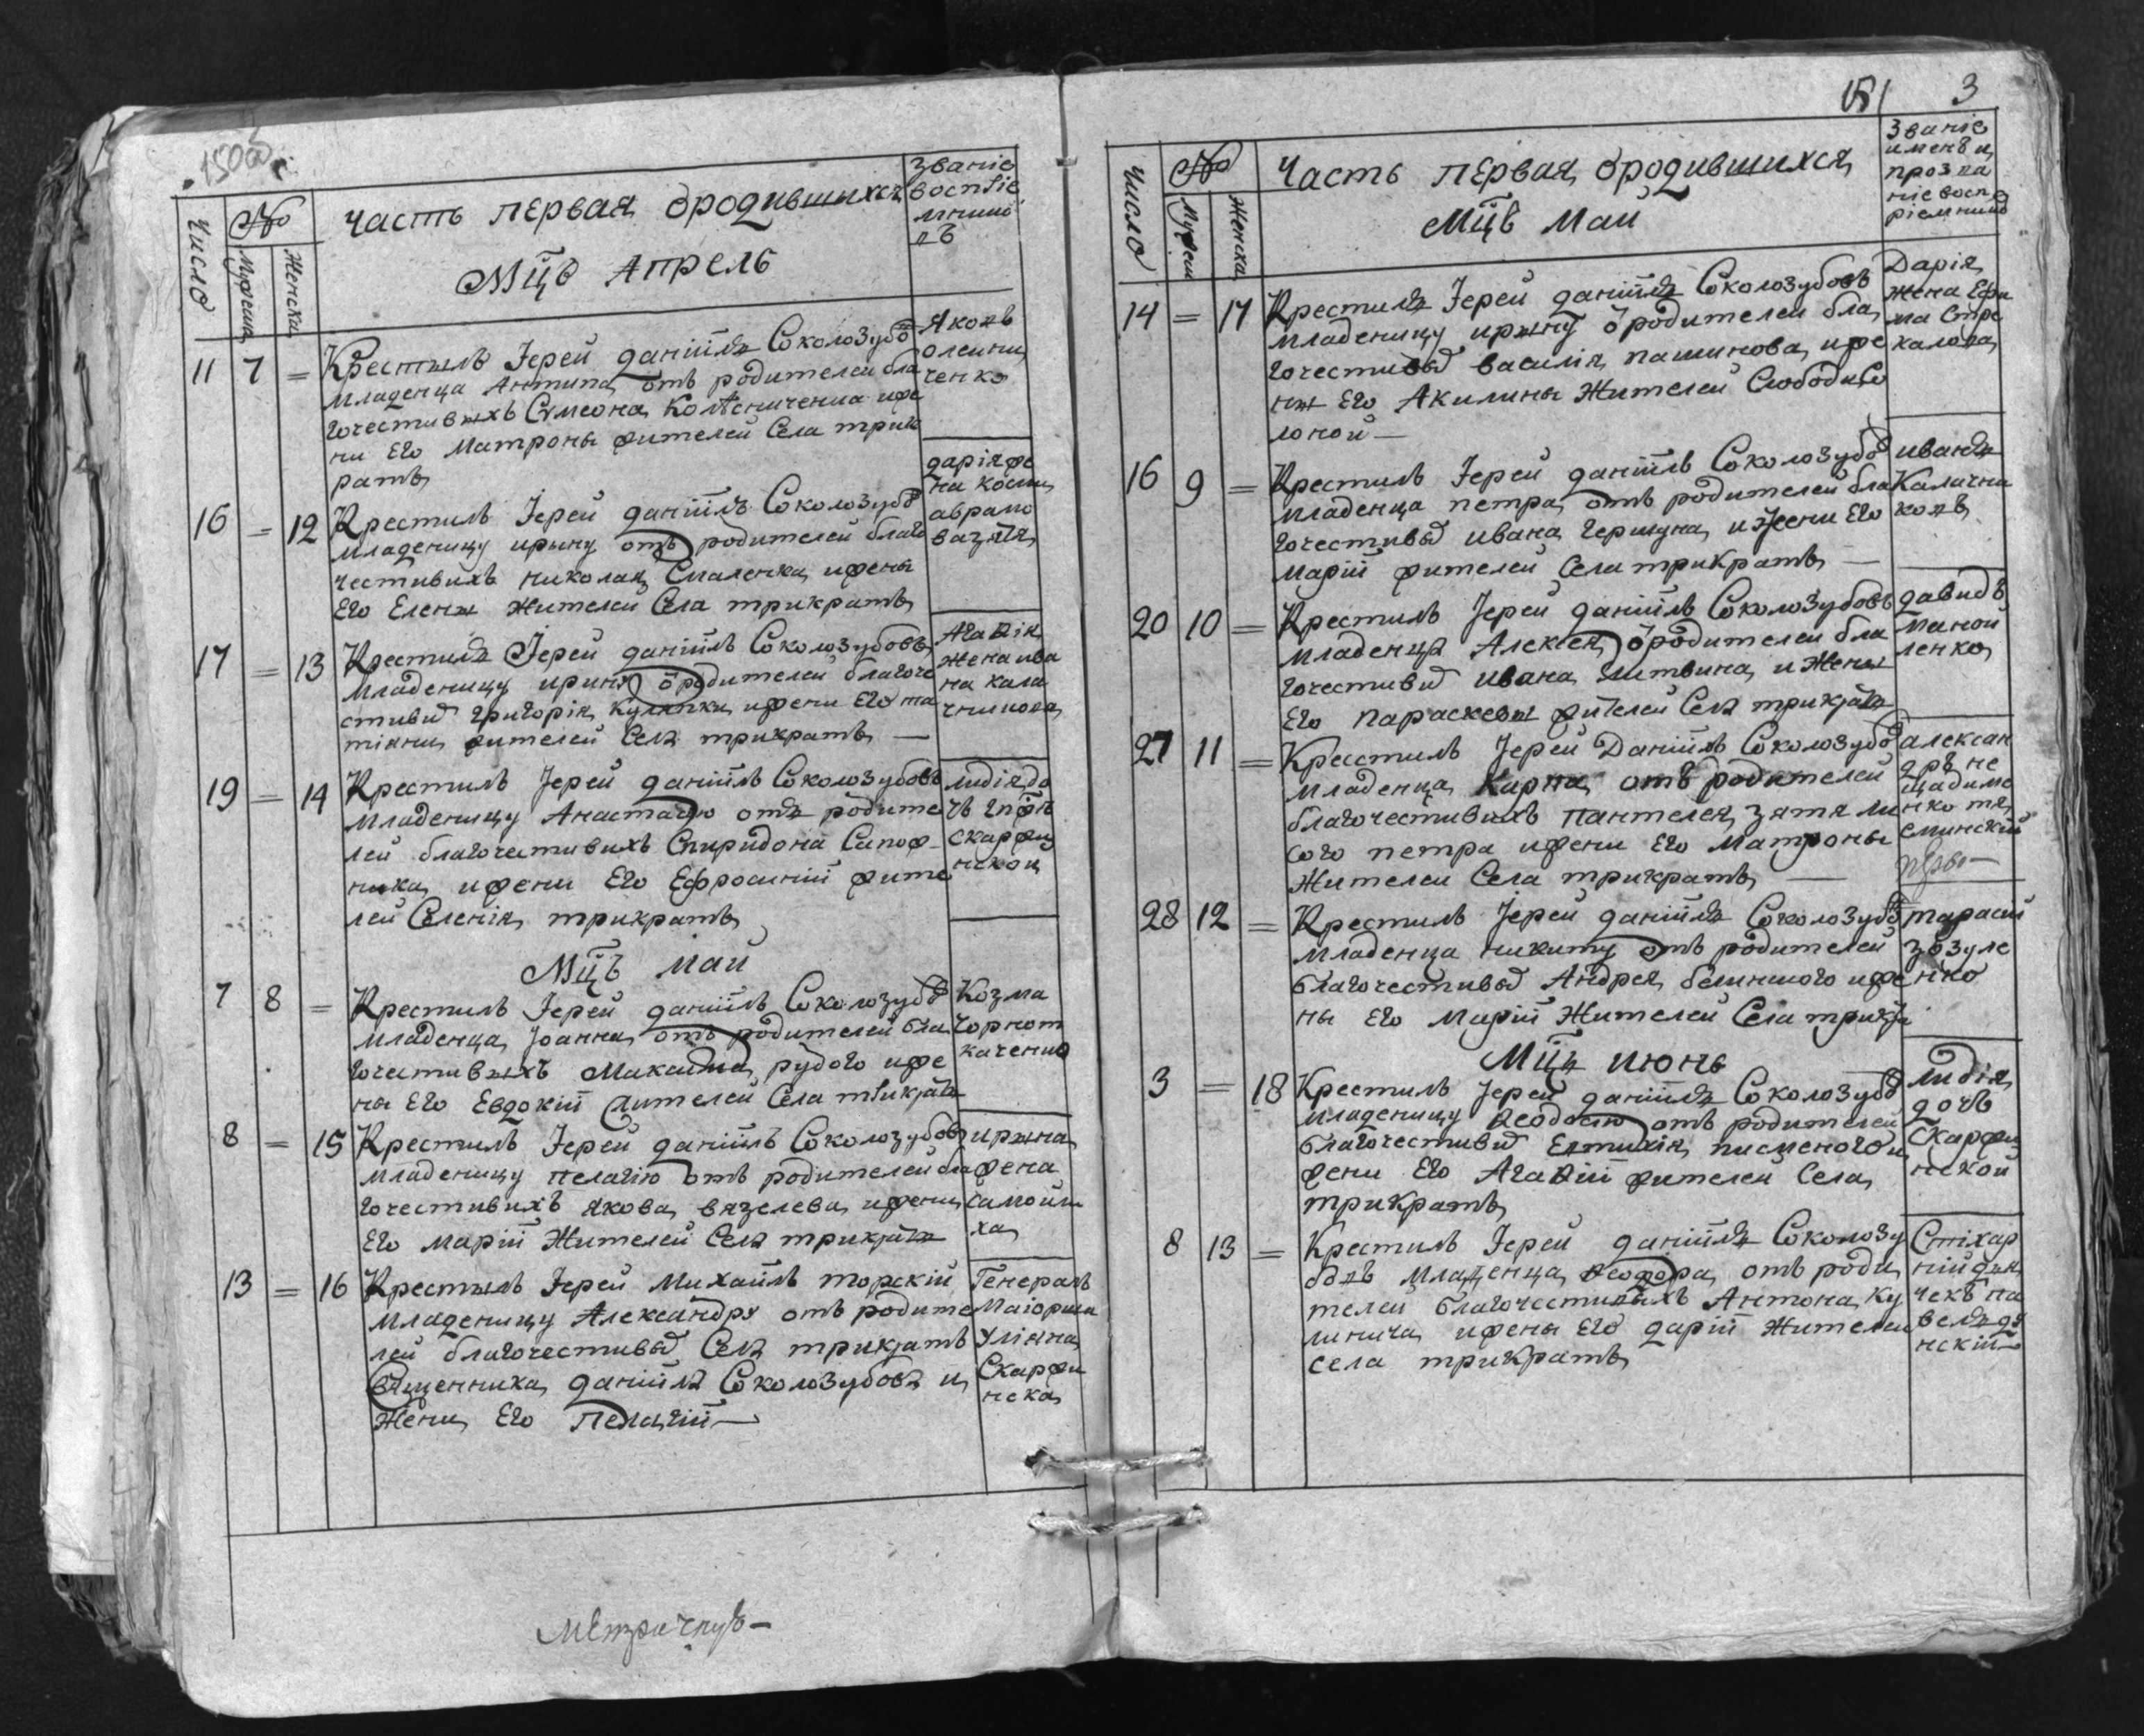 150об
Число
№
Мужеска
Женска
часть первая ѡродившихсѧ
Мцъ Апрель
званіе
воспріе
мнико
въ
11 7 =
Крестилъ Іерей даніилъ Соколозубовъ
младенца Антипа отъ родителей бла
гочестивыхъ Сѵмеона Колесниченка ижe
ни Его Матроны жителей Села трик
ратъ
Яковъ
олейни
ченко
16 = 12
Крестилъ Іерей даніилъ Соколозубовъ
младеницу ирыну отъ родителей благо
честивихъ николая Смаленка ижены
Его Елены жителей Села трикратъ
дарія же
на косми
аврамо
ва зятя
17 = 13
Крестилъ Іерей даніилъ Соколозубовъ
младеницу ирину ѿродителей благоче
стивих григорія Куляпки ижени Его та
тіяни жителей Села трикратъ —
Агафія
жена ива
на кала
чникова
19 = 14
Крестилъ Іерей даніилъ Соколозубовъ
младеницу Анастасію отъ родите
лей благочестивихъ Спиридона Сапож
ника ижени Его Ефросиніи жите
лей Селенія трикратъ
лидія до
чъ
скаржи
нской
Мцъ май
7 8 =
Крестилъ Іерей даніилъ Соколозубовъ
младенца Іоанна отъ родителей бла
гочестивыхъ рудого иже
ны Его Евдокіи жителей Села трикратъ
Козма
Чорнот
каченко
8 = 15
Крестилъ Іерей даніилъ Соколозубовъ
младеницу пелагію отъ родителей бла
гочестивихъ якова вязелева ижени
Его маріи жителей Села трикратъ
ирына
жена
самойли
ха
13 = 16
Крестылъ Іерей Михаилъ торскій
младеницу Александру отъ родите
лей благочестивых Села трикратъ
Священника даніила Соколозубова и
жени Его пелагіи —
Генералъ
Маіорша
Уліяна
Скаржи
нска
Метричнув —
151 3
Число
№
Мужеск
Женска
Часть первая ѡродившихся
Мцъ май
Званіе
именъ и
прозва
ніе восп
ріемников
14 = 17
Крестилъ Іерей даніилъ Соколозубовъ
младеницу ирыну ѿродителей бла
гочестивых василія пашинова иже
ны Его Акилины Жителей Слободи Со
лоной —
Дарія
жена Ефи
ма Стре
калова
16 9 =
Крестилъ Іерей даніилъ Соколозубовъ
младенца петра отъ родителей бла
гочестивых ивана Гершуна и Жени Его
Маріи жителей Села трикратъ —
иванъ
Калачни
ковъ
20 10 =
Крестилъ Іерей даніилъ Соколозубовъ
младенца Алексея ѿродителей бла
гочестивих ивана литвина и Жены
Его параскевы жителей Села трикратъ
давидъ
маной
ленко
27 11 =
Крестилъ Іерей Даніилъ Соколозубовъ
младенца Карпа отъ родителей
благочестивыхъ пантелея зятя ли
сого петра ижени Его матроны
Жителей Села трикратъ —
алексан
дръ не
щадимо
28 12 =
Крестилъ Іерей даніилъ Соколозубовъ
младенца никиту отъ родителей
благочестивых Андрея белиншого иже
ны Его Маріи Жителей Села трикр
тарасій
зозуле
нко
Мцъ июнь
3 = 18
Крестилъ Іерей даніилъ Соколозубовъ
младеницу Ѳеодосію отъ родителей
благочестивих Евтихія писменого и
жени Его Агафіи жителей Села
трикратъ
лидія
дочъ
Скаржи
нской
8 13 =
Крестилъ Іерей даніилъ Соколозу
бовъ младенца Ѳеодора отъ роди
телей благочестивыхъ Антона Ку
линича ижены Его даріи жителей
села трикратъ
Стіхар
ній дия
чекъ па
велъ ду
нскій